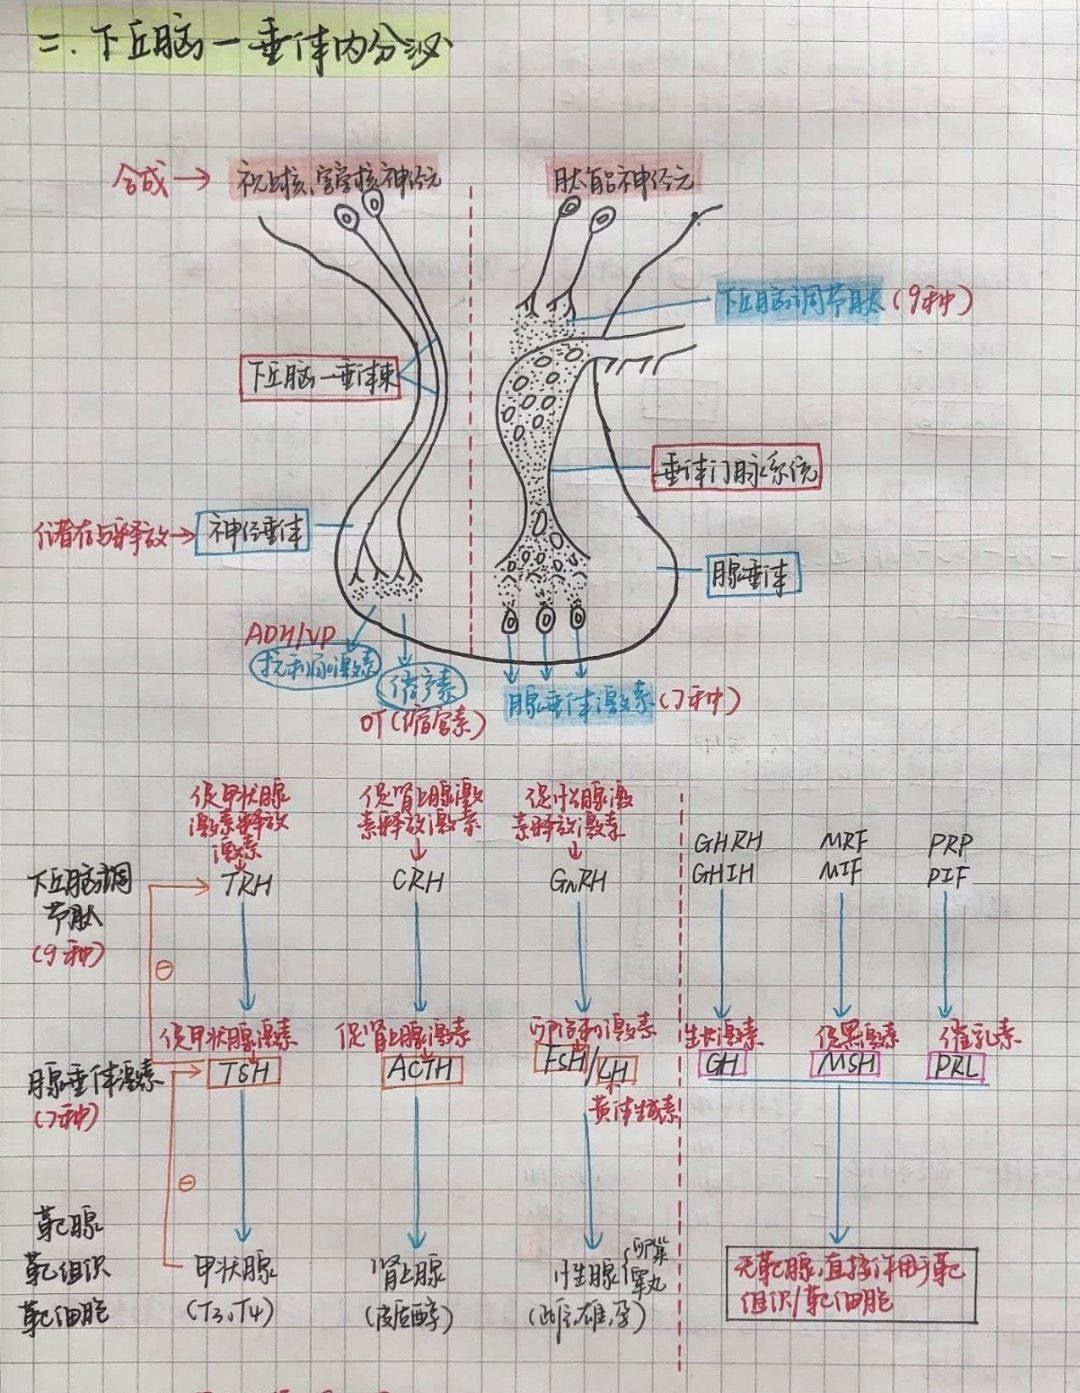 二.下丘脑-垂体内分泌
合成→
视上核、室旁核神经元
肽能神经元
下丘脑调节肽(9种)
下丘脑-垂体束
垂体门脉系统
储存与释放→
神经垂体
腺垂体
ADH/VP
抗利尿激素
催产素
OT(缩宫素)
腺垂体激素(7种)
促甲状腺
激素释放
激素
促肾上腺激
素释放激素
促性腺激
素释放激素
下丘脑调
节肽
(9种)
TRH
CRH
GnRH
GHRH
GHIH
MRF
MIF
PRP
PIF
⊖
促甲状腺激素
促肾上腺激素
卵泡刺激素
生长激素
促黑激素
催乳素
腺垂体激素
(7种)
TSH
ACTH
FSH/LH
GH
MSH
PRL
黄体生成素
⊖
靶腺
靶组织
靶细胞
甲状腺
(T3、T4)
肾上腺
(皮质醇)
性腺{卵巢
睾丸
(雌、雄、孕)
无靶腺,直接作用于靶
组织/靶细胞